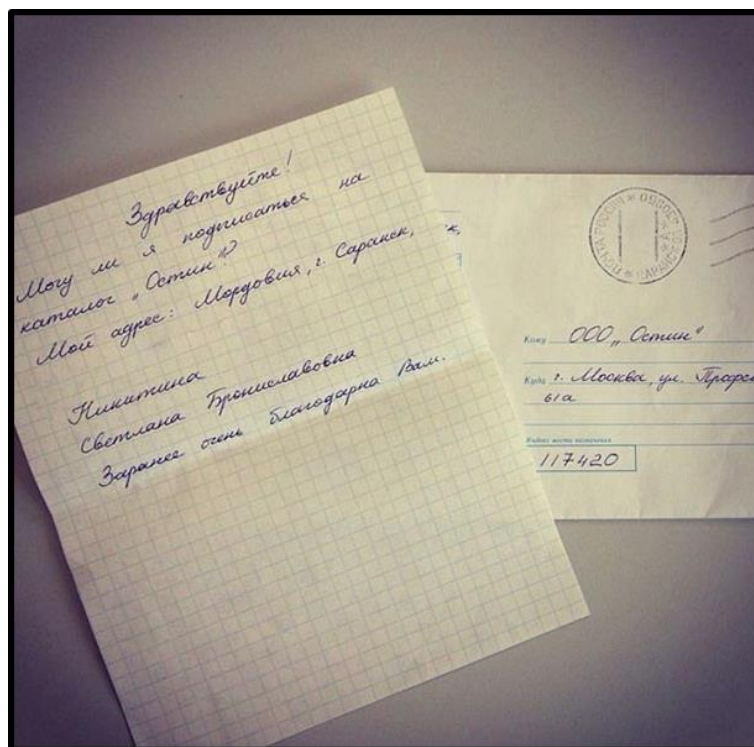 Здравствуйте!
Могу ли я подписаться на
каталог „Остин"?
Мой адрес: Мордовия, г. Саранск,
Никитина
Светлана Брониславовна
Заранее очень благодарна Вам.
ПОЧТА РОССИИ САРАНСК
Кому ООО „Остин"
Куда г. Москва, ул. Профс
61а
Индекс места назначения
117420